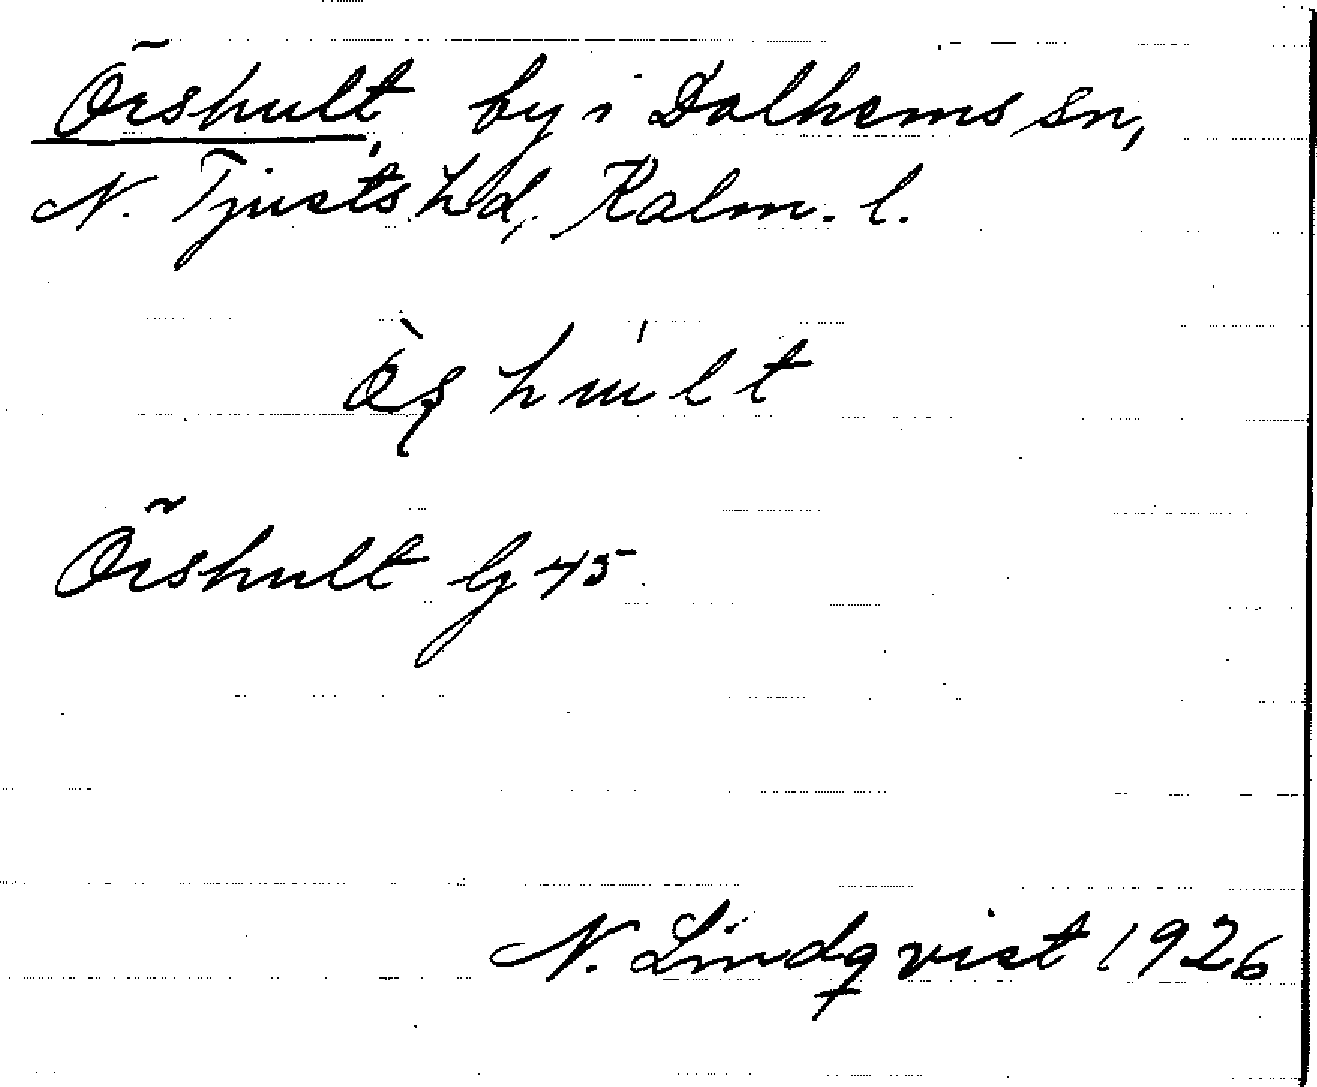 Örshult, by i Dalhems sn,
N. Tjusts hd, Kalm. l.
Örshult G 45
N. Lindqvist 1926